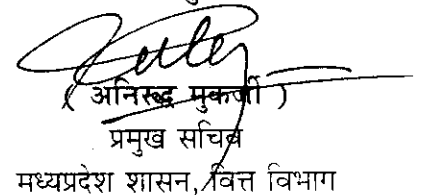 ( अनिरूद्ध मुकर्जी )
प्रमुख सचिव
मध्यप्रदेश शासन, वित्त विभाग